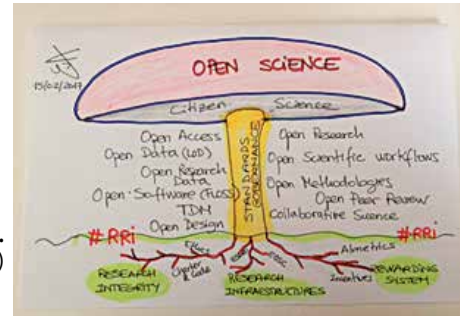 15/02/2017
OPEN SCIENCE
Citizen Science
Open Access
Open Data (LOD)
Open Research
Data
Open Software (FLOSS)
TDM
Open Design
STANDARDS
GOVERNANCE
Open Research
Open Scientific workflows
Open Methodologies
Open Peer Review
Collaborative Science
#RRi
#RRi
Ethics
Charter
& Code
EOSC
Altmetrics
Incentives
RESEARCH
INTEGRITY
RESEARCH
INFRAESTRUCTURES
REWARDING
SYSTEM
.
)